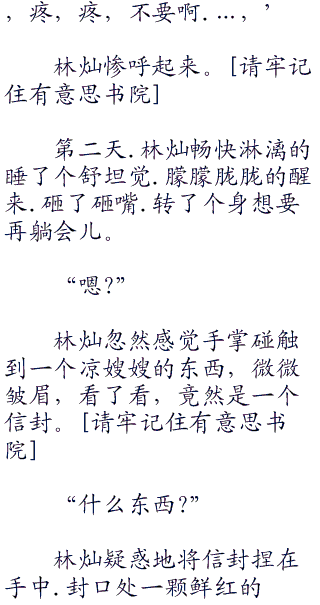 ，疼，疼，不要啊．…，’
林灿惨呼起来。[请牢记
住有意思书院]
第二天．林灿畅快淋漓的
睡了个舒坦觉．朦朦胧胧的醒
来．砸了砸嘴．转了个身想要
再躺会儿。
“嗯？”
林灿忽然感觉手掌碰触
到一个凉嫂嫂的东西，微微
皱眉，看了看，竟然是一个
信封。[请牢记住有意思书
院]
“什么东西？”
林灿疑惑地将信封捏在
手中．封口处一颗鲜红的